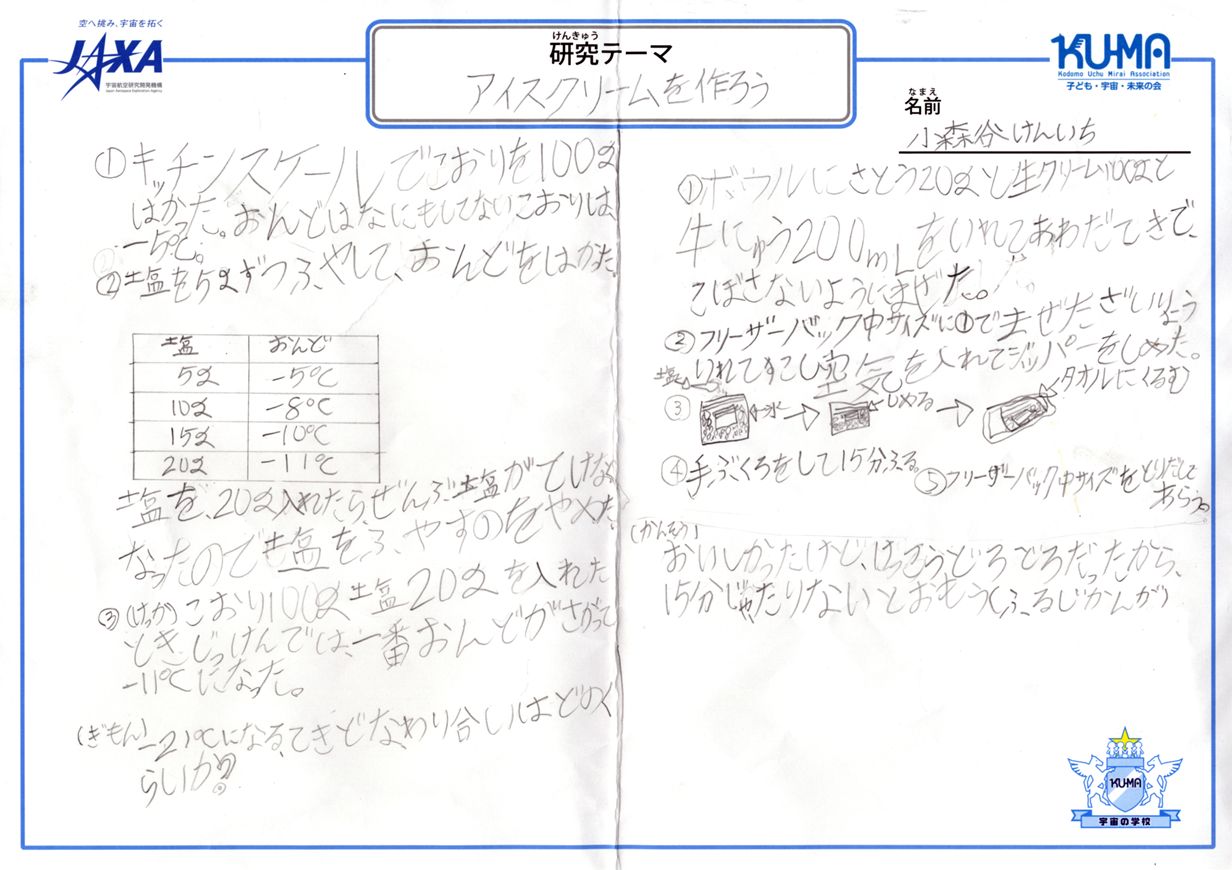 空へ挑み、宇宙を拓く
JAXA
宇宙航空研究開発機構
Japan Aerospace Exploration Agency
けんきゅう
研究テーマ
アイスクリームを作ろう
KU-MA
Kodomo Uchu Mirai Association
子ども・宇宙・未来の会
なまえ
名前
小森谷けんいち
①キッチンスケールでこおりを100g
はかった。おんどはなにもしてないこおりは、
-5℃。
②塩を5gずつふやして、おんどをはかった。
塩 おんど
5g -5℃
10g -8℃
15g -10℃
20g -11℃
塩を、20g入れたらぜんぶ塩がとけなく
なったので塩をふやすのをやめた。
③(けっか)こおり100g塩20gを入れた
ときじっけんでは、一番おんどがさがって
-11℃になった。
(ぎもん)-21℃になる、てきどな、わり合いはどのく
らいか?
①ボウルにさとう20gと生クリーム100gと
牛にゅう200mLをいれてあわだてきで、
こぼさないようにまぜた。
②フリーザーバック中サイズに①でまぜたざいりょう
いれてすこし空気を入れてジッパーをしめた。
③ 塩 氷 しめる タオルにくるむ
④手ぶくろをして15分ふる。
⑤フリーザーバック中サイズをとりだして
あらう。
(かんそう)
おいしかったけど、けっこうどろどろだったから、
15分じゃたりないとおもう(ふるじかんが)
KU-MA
宇宙の学校